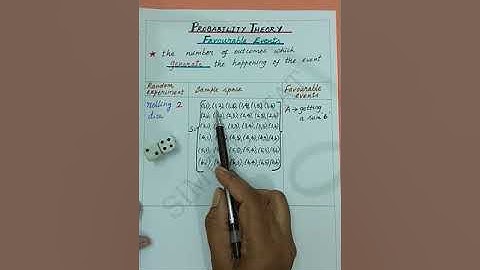 PROBABILITY THEORY
Favourable Events
★ the number of outcomes which
generate the happening of the event
Random experiment
Sample space
Favourable events
rolling 2 dice
S=
(1,1), (1,2), (1,3), (1,4), (1,5), (1,6)
(2,1), (2,3), (2,4), (2,5), (2,6)
(3,1), (3,3), (3,4), (3,5), (3,6)
(4,1), (4,3), (4,4), (4,5), (4,6)
(5,1), (5,3), (5,4), (5,5), (5,6)
(6,1), (6,3), (6,4), (6,5), (6,6)
A → getting
a sum 6